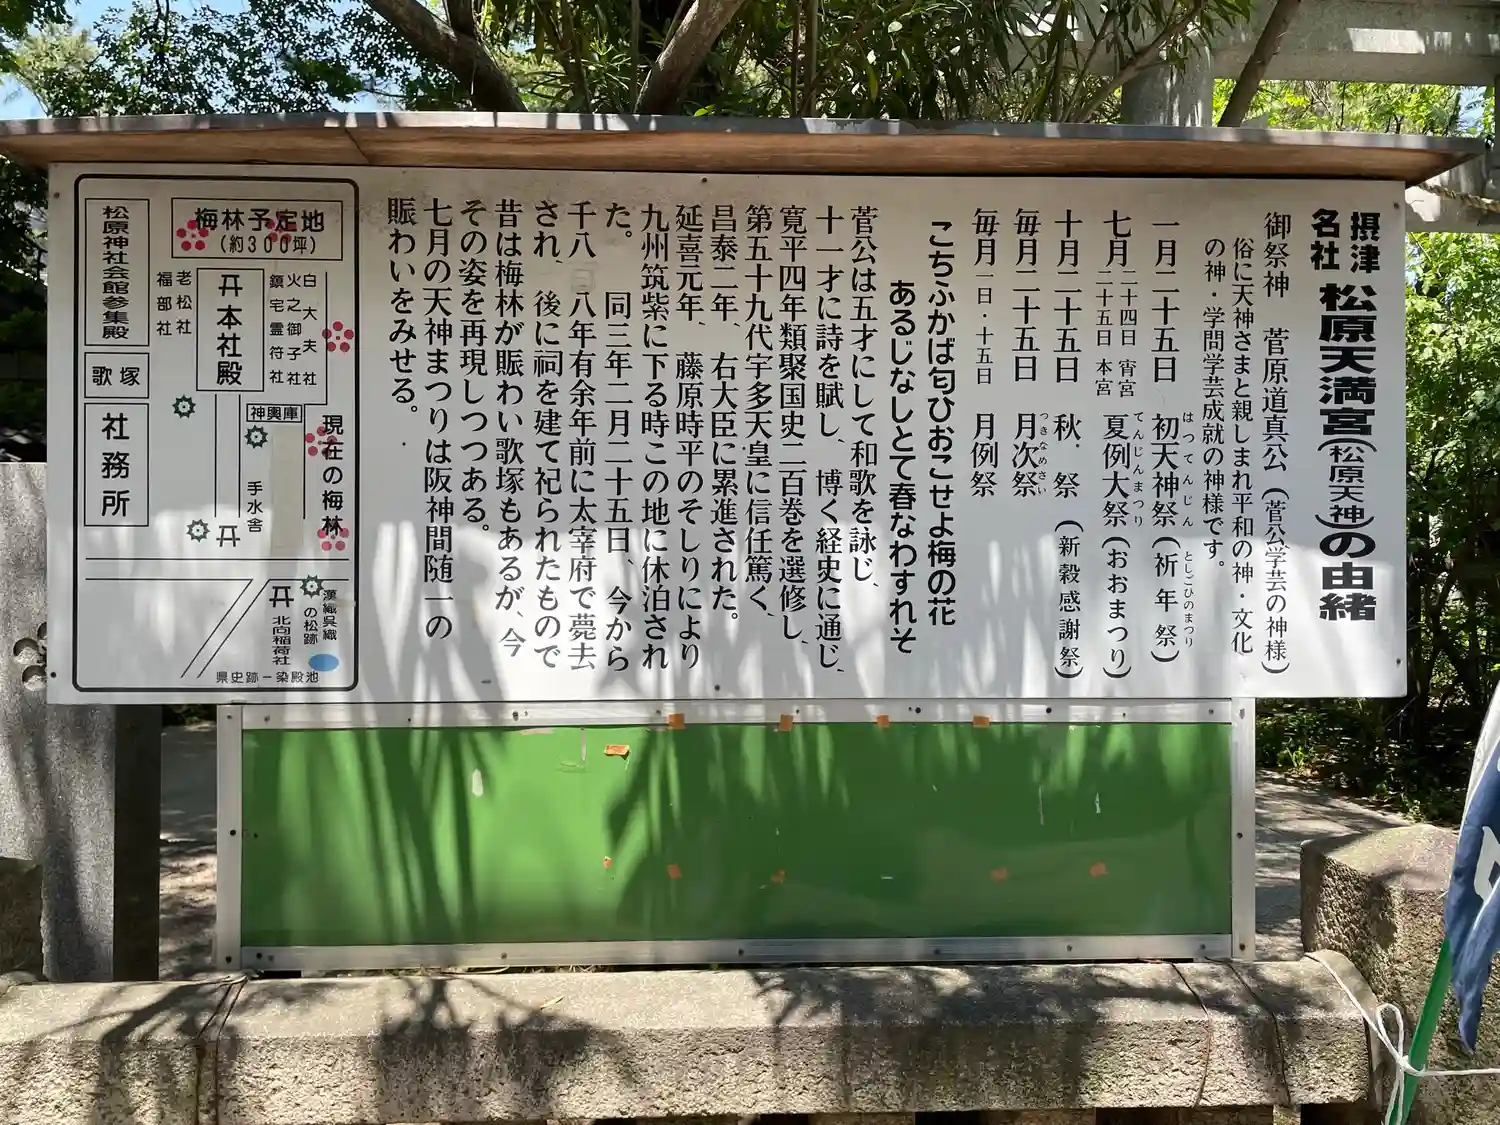 摂津名社 松原天満宮(松原天神)の由緒
御祭神 菅原道真公(菅公学芸の神様)
俗に天神さまと親しまれ平和の神・文化
の神・学問学芸成就の神様です。
一月二十五日 初天神祭(祈年祭)
はつてんじん としごひのまつり
七月二十四日 宵宮 二十五日 本宮 夏例大祭(おおまつり)
てんじんまつり
十月二十五日 秋祭(新穀感謝祭)
毎月二十五日 月次祭
つきなめさい
毎月一日・十五日 月例祭
こちふかば匂ひおこせよ梅の花
あるじなしとて春なわすれそ
菅公は五才にして和歌を詠じ、
十一才に詩を賦し、博く経史に通じ、
寛平四年類聚国史二百巻を選修し、
第五十九代宇多天皇に信任篤く、
昌泰二年、右大臣に累進された。
延喜元年、藤原時平のそしりにより
九州筑紫に下る時この地に休泊され
た。 同三年二月二十五日、今から
千八 八年有余年前に太宰府で薨去
され、後に祠を建て祀られたもので
昔は梅林が賑わい歌塚もあるが、今
その姿を再現しつつある。
七月の天神まつりは阪神間随一の
賑わいをみせる。
梅林予定地
(約300坪)
松原神社会館参集殿
歌塚
社務所
老松社
福部社
本社殿
白大夫社
火之御子社
鎮宅霊符社
神輿庫
現在の梅林
手水舎
漢織呉織
の松跡
北向稲荷社
県史跡ー染殿池